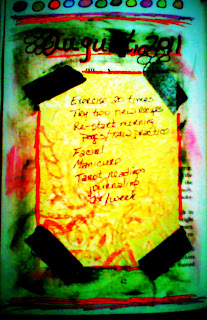 August 2011
Exercise 20 times
Try two new recipes
Re-start morning
pages/TAW practice
Facial
Manicure
Tarot readings
journaling
2x/week